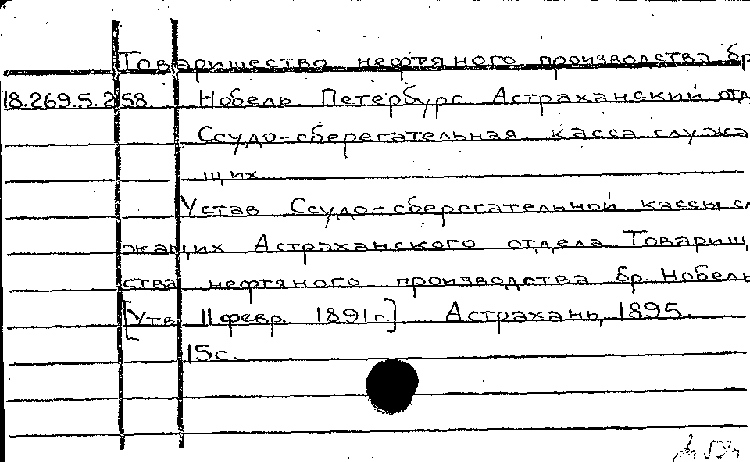 Товарищество нефтяного производства бр
18.269.5.258 Нобель Петербург Астраханский отд
Ссудо-сберегательная касса служа
щих
Устав Ссудо-сберегательной кассы сл
жащих Астраханского отдела Товарищ
ства нефтяного производства бр. Нобель
[Утв. 11 февр. 1891 г.] Астрахань, 1895.
15 с.